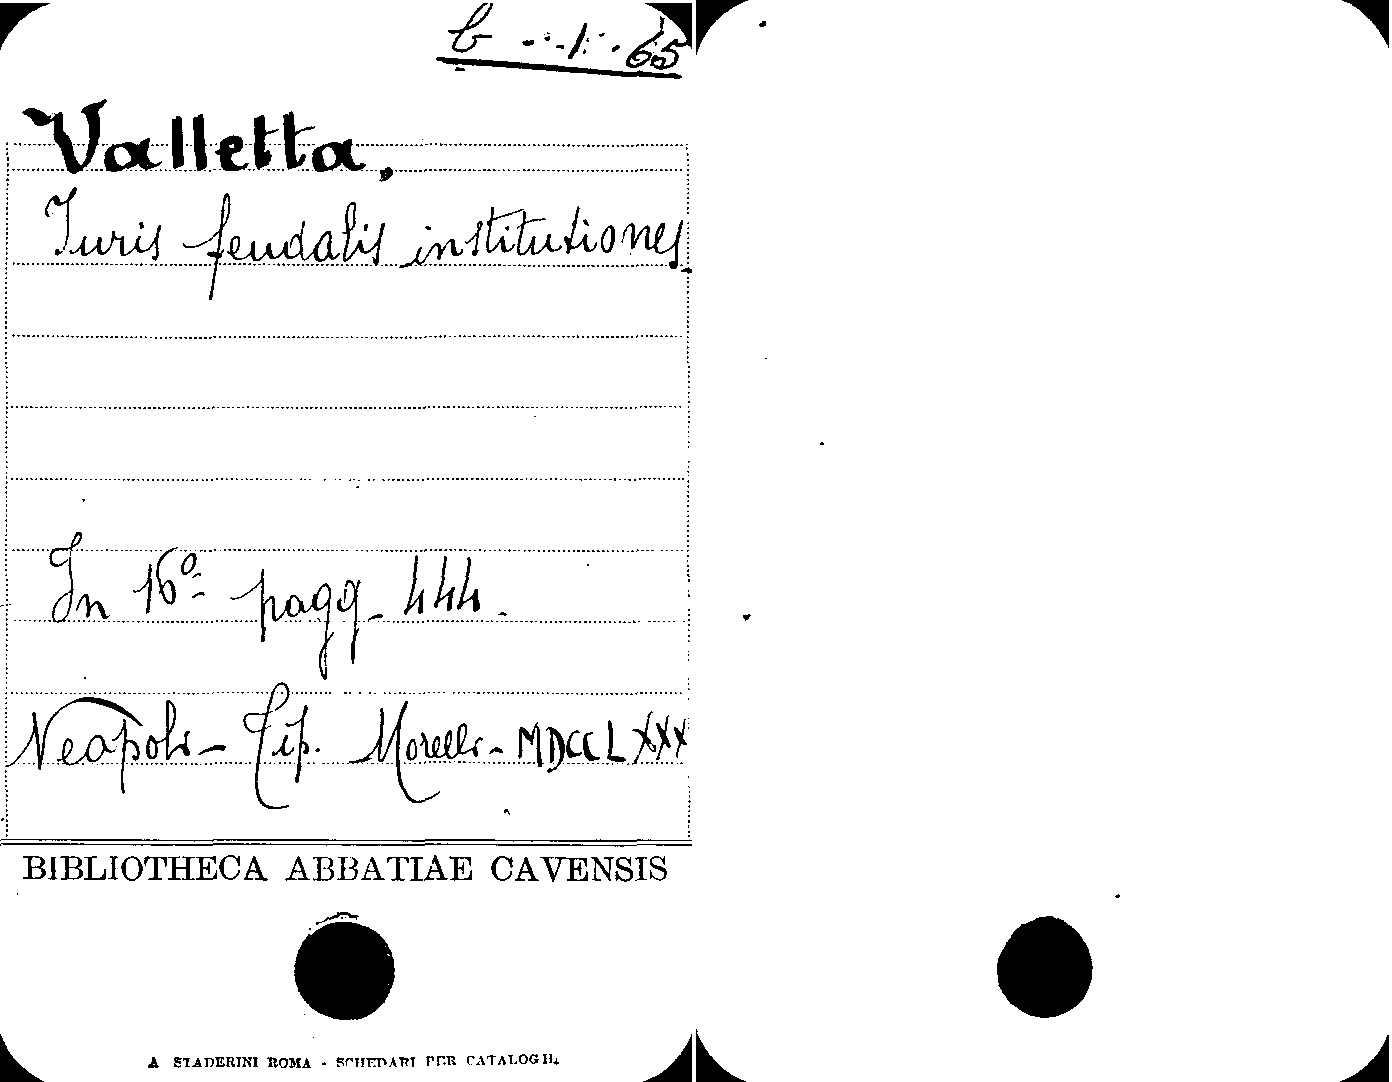 b - 1 - 65
Valletta,
Iuris feudalis institutiones.
In 16º pagg. 444.
Neapoli - Tip. Morelli - MDCCLXXX
BIBLIOTHECA ABBATIAE CAVENSIS
A STADERINI ROMA - SCHEDARI PER CATALOGHI.